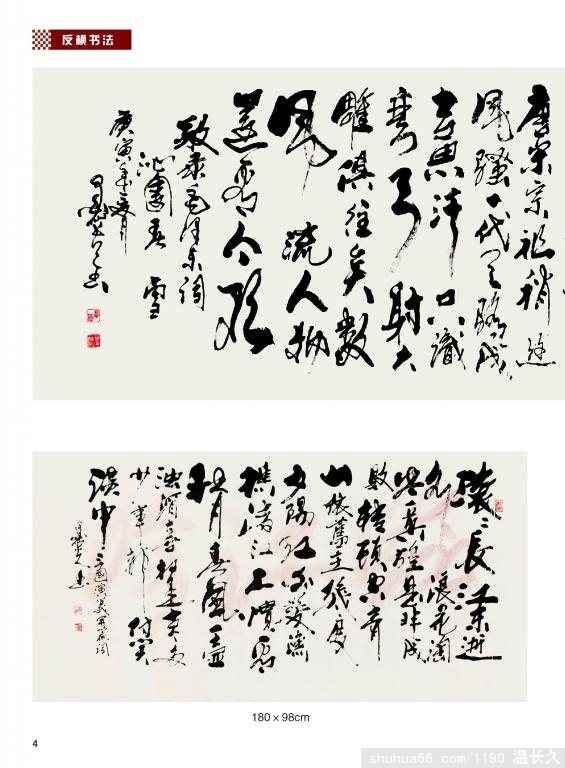 反横书法
唐宗宋祖稍逊
風騷一代天骄成
吉思汗只識
弯弓射大
雕俱往矣数
風流人物
还看今朝
敬录毛泽东词
沁園春雪
庚寅年夏月
滚滚長江东逝
水浪花淘
尽英雄是非成
败转頭空青
山依舊在幾度
夕陽红白发漁
樵渚江上慣看
秋月春風一壶
浊酒喜相逢古今多
少事都付笑
谈中
三国演义開篇詞
180×98cm
4
shuhua66.com/1190 温长久